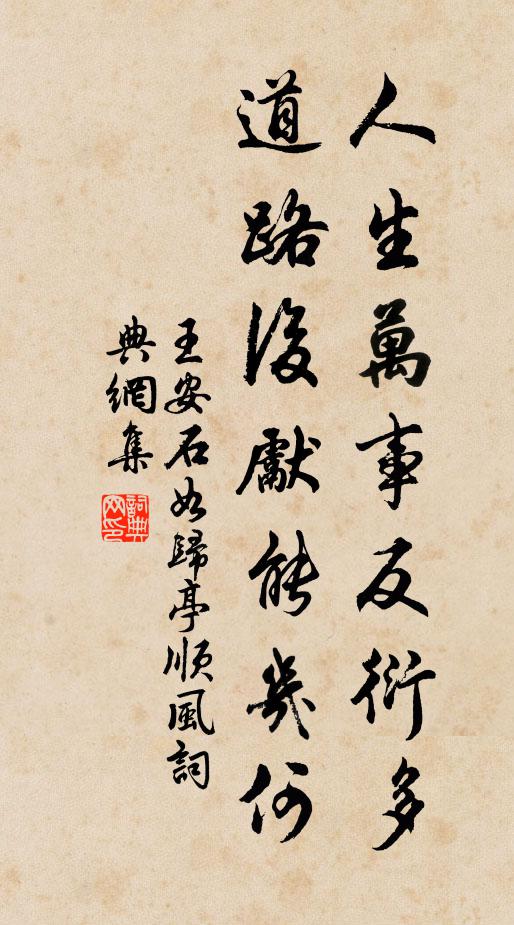 人生萬事反衍多
道路後獻能幾何
王安石如歸亭順風詞
典網集
詞典
网印